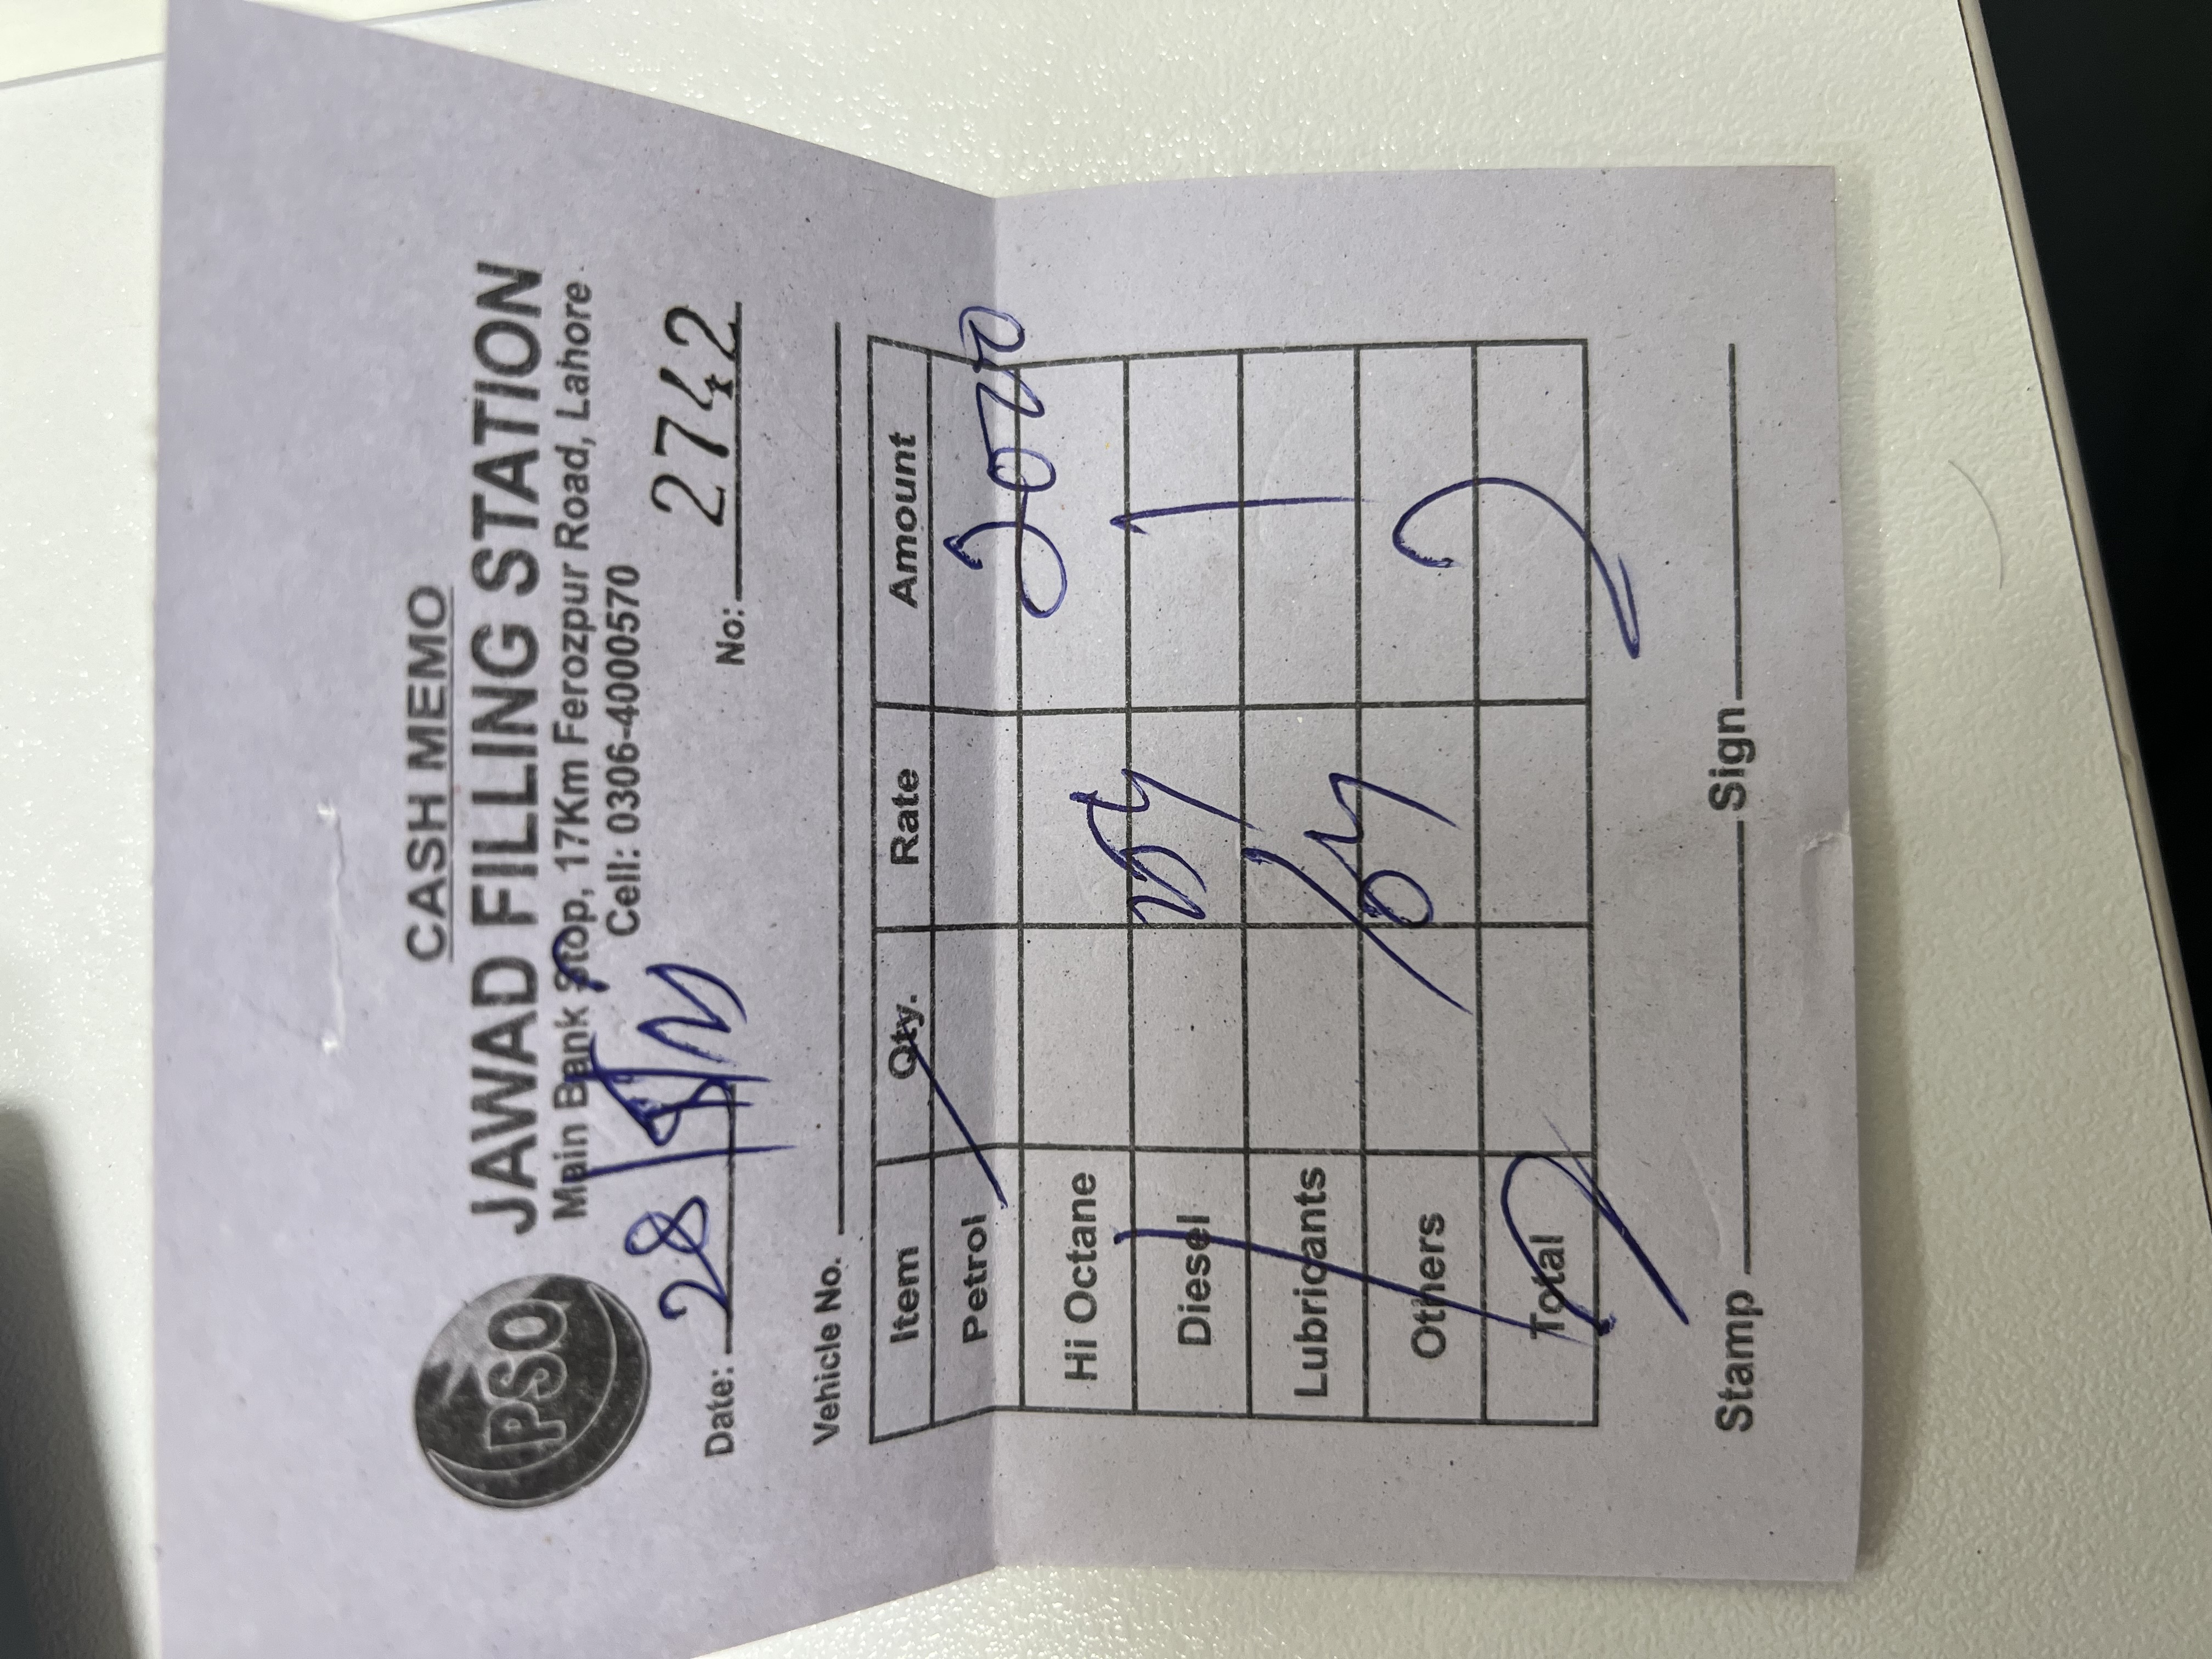 CASH MEMO
PSO
JAWAD FILLING STATION
Main Bank Stop, 17Km Ferozpur Road, Lahore
Cell: 0306-4000570
Date: 28/
No: 2742
Vehicle No.
Item Qty. Rate Amount
Petrol 2000
Hi Octane
Diesel
Lubricants
Others
Total
Stamp Sign